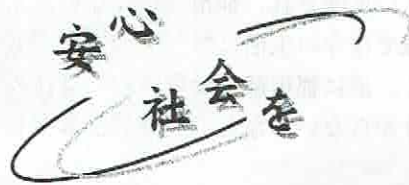 安心
社会を